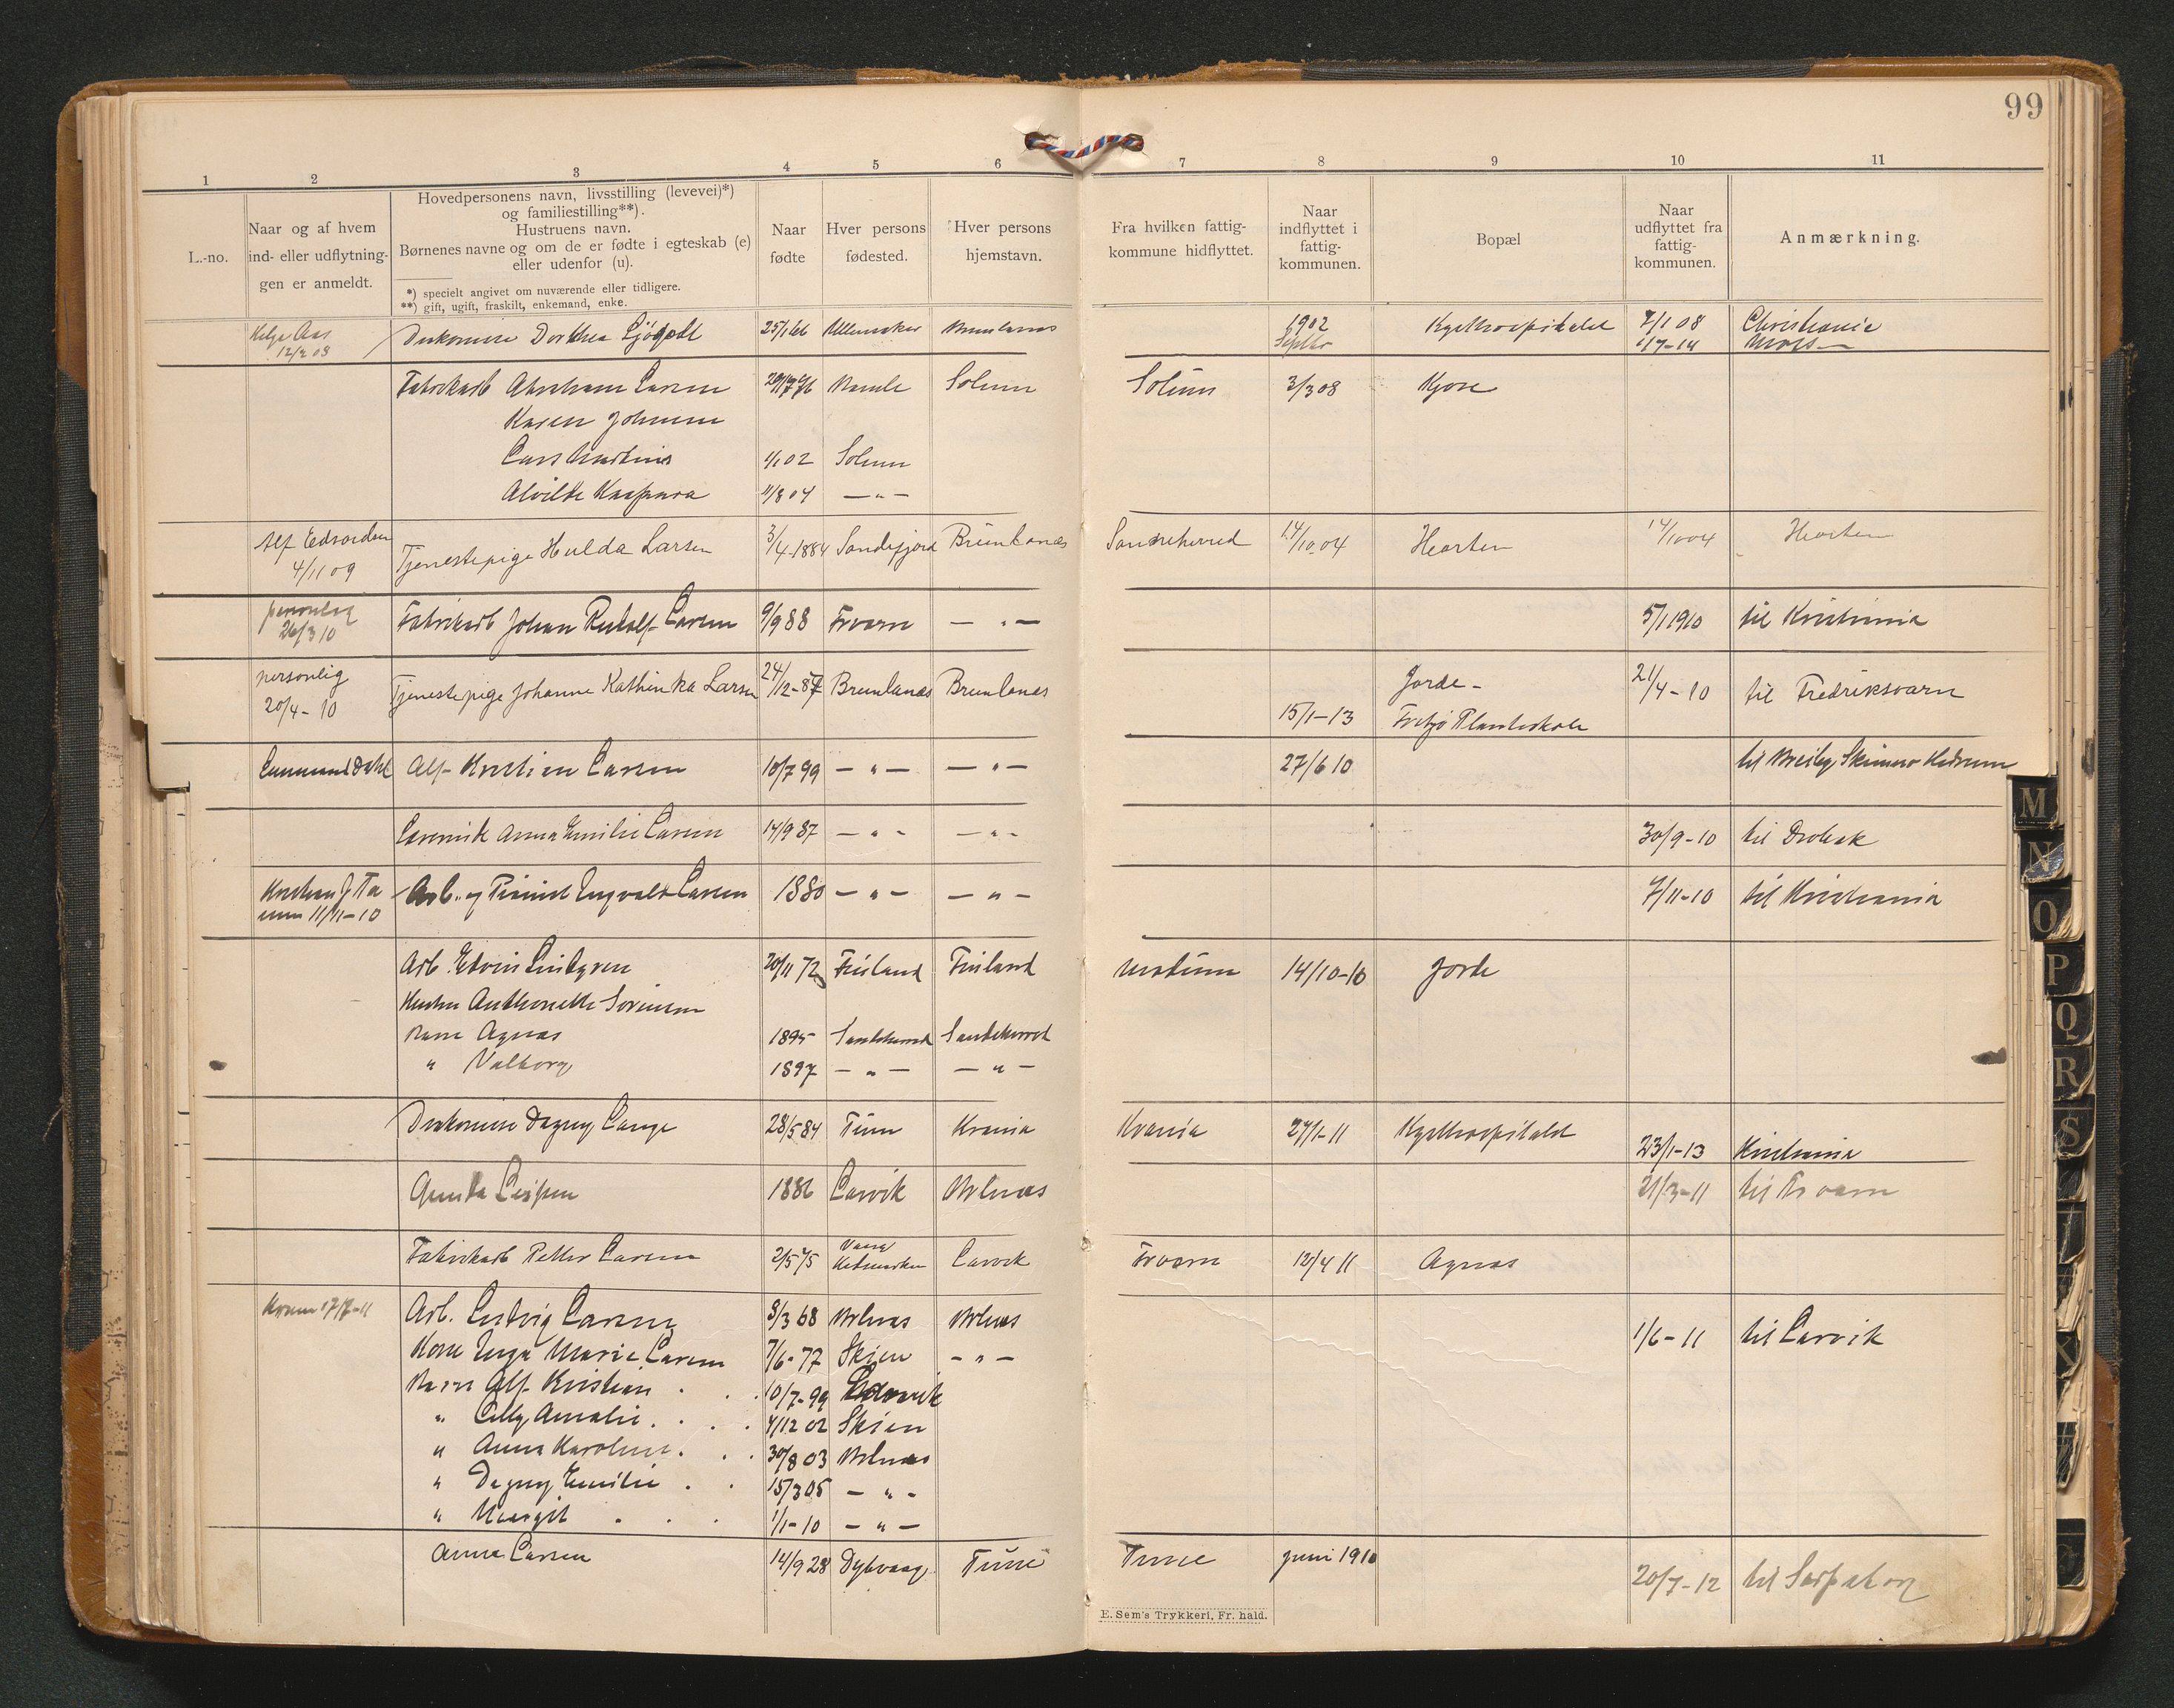 99
1 2 3 4 5 6 7 8 9 10 11
L.-no.
Naar og af hvem
ind- eller udflytnin-
gen er anmeldt.
Hovedpersonens navn, livsstilling (levevei)*)
og familiestilling**).
Hustruens navn.
Børnenes navne og om de er fødte i egteskab (e)
eller udenfor (u).
*) specielt angivet om nuværende eller tidligere.
**) gift, ugift, fraskilt, enkemand, enke.
Naar
fødte
Hver persons
fødested.
Hver persons
hjemstavn.
Fra hvilken fattig-
kommune hidflyttet.
Naar
indflyttet i
fattig-
kommunen.
Bopæl
Naar
udflyttet fra
fattig-
kommunen.
Anmærkning.
Helge Aas Dorthea 25/1 66 Ullensaker 1902 7/1 08 Christiania
12/2 08 Septbr 1/7-14 Moss
Fabrikarb Abraham Larsen Bamle Solum Solum 3/3 08 Kjose
Karen Johnsen
Lars Martinus 4/1 02 Solum
Alvilde Kaspara 11/8 04 — " —
Alf Edvardsen Tjenestepige Hulda Larsen 3/4-1884 Sandefjord Brunlanæs Sandeherred 14/10.04 Horten 14/10 04 Horten
4/11 09
personlig Fabrikarb Johan Rudolf Larsen 9/9 88 Frværn — " — 5/1 1910 til Kristiania
26/3 10
personlig Tjenestepige Johanne Kathinka Larsen 24/12-87 Brunlanæs Brunlanæs Jorde - 21/4-10 til Fredriksværn
20/4-10 15/1-13 Fritzø Planteskole
Emmanuel Dahl Alf Kristian Larsen 10/7 99 — " — — " — 27/6 10 til Hedrum
Anna Emilie Larsen 14/9 87 — " — — " — 30/9-10 til Drøbak
Arb. og Ingvald Larsen 1880 — " — — " — 7/11-10 til Kristiania
11/11-10
Arb. Edvin Lindgren 20/11 72 Finland Finland Modum 14/10-10 Jorde
Hustru Anthonette Sørensen
Barn Agnes 1895 Sandeherred Sandeherred
" Valborg 1897 — " — — " —
Diakonisse Dagny Lange 28/5 84 Krania Krania 27/1-11 Kysthospitalet 23/1-13 Kristiania
Gunda 1886 Larvik Brlnæs 21/3-11 til Frværn
Fabrikarb Petter Larsen 2/5 75 Larvik Frværn 12/4 11 Agnes
17/7-11 Arb. Ludvig Larsen 8/3 68 Brlnæs Brlnæs 1/6-11 til Larvik
Kone Inga Marie Larsen 7/6-77 Skien — " —
Barn Alf Kristian . . . 10/7-99 Larvik
" Lilly Amalie . . . 4/12 02 Skien
" Anna Karoline . . . 30/8 03 Brlnæs
" Dagny Emilie . . 15/3 05 — " —
" Margit . . . 1/1-10 — " —
Anna Larsen 14/9 28 Dybvaag Tune Tune juni 1910 20/7-12 til Sarpsborg
E. Sem's Trykkeri, Fr. hald.
M
N
O
P
Q
R
S